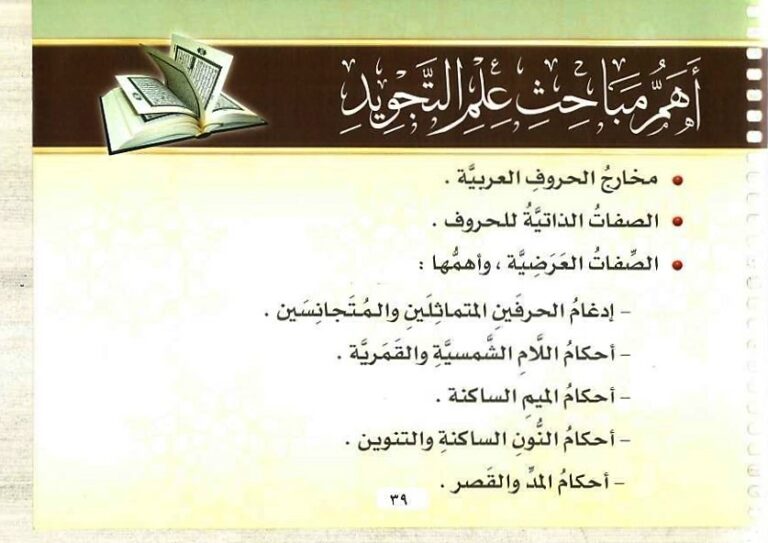 أَهَمُّ مَبَاحِثِ عِلْمِ التَّجْوِيدِ
• مخارجُ الحروفِ العربيَّة .
• الصفاتُ الذاتيَّةُ للحروف .
• الصِّفاتُ العَرَضِيَّة ، وأهمُّها :
– إدغامُ الحرفَينِ المتماثِلَينِ والمُتَجانِسَين .
– أحكامُ اللَّامِ الشَّمسيَّةِ والقَمَريَّة .
– أحكامُ الميمِ الساكنة .
– أحكامُ النُّونِ الساكنةِ والتنوين .
– أحكامُ المدِّ والقَصر .
٣٩